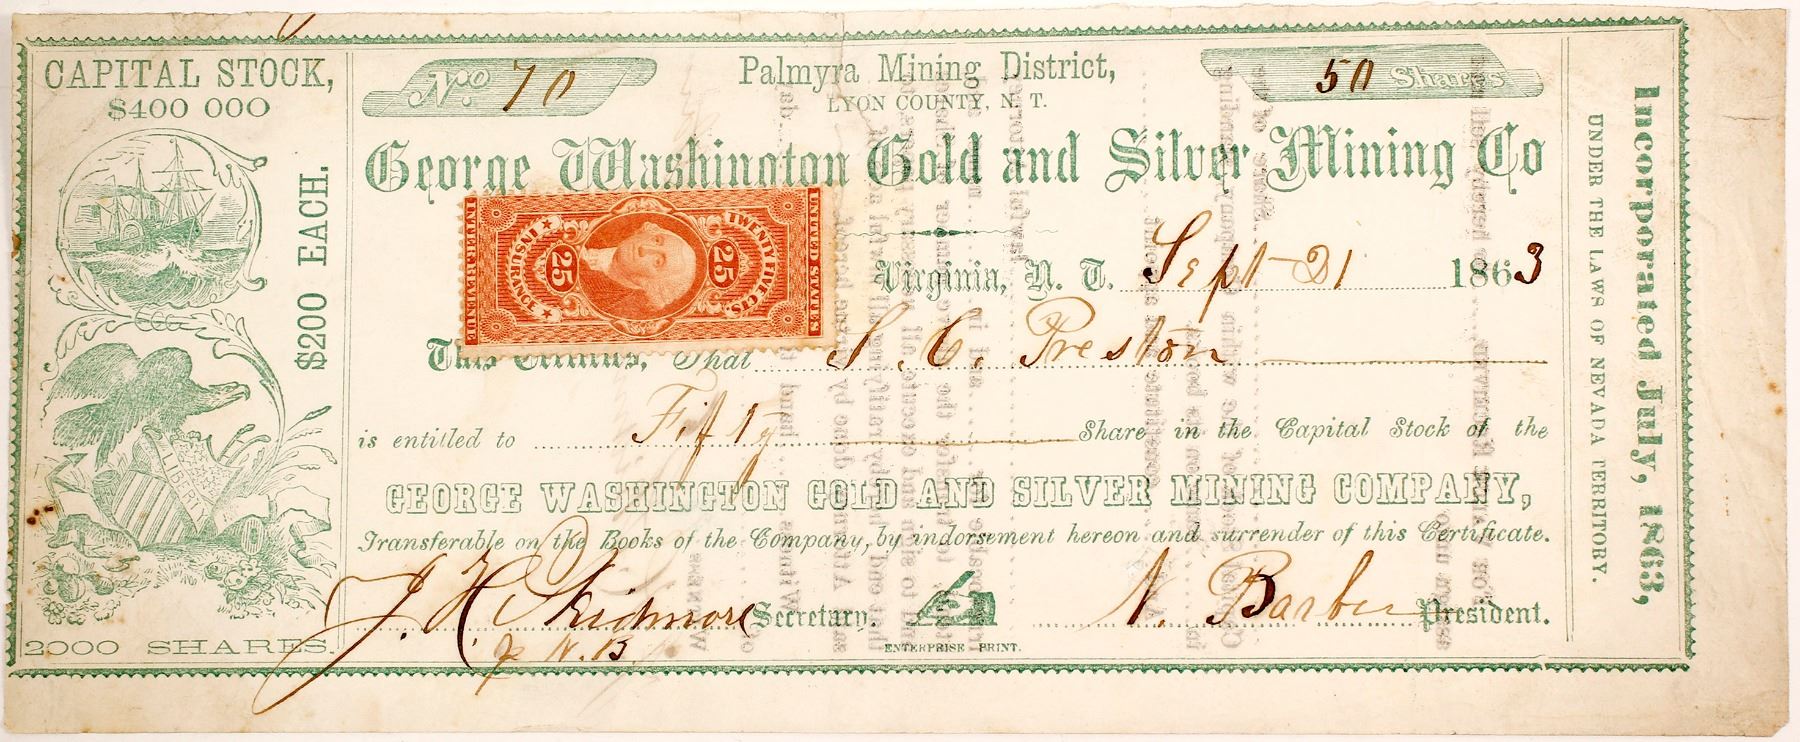 CAPITAL STOCK,
$400 000
$200 EACH.
LIBERTY
2000 SHARES.
No. 70
Palmyra Mining District,
LYON COUNTY, N. T.
50 Shares
George Washington Gold and Silver Mining Co
UNITED STATES
TWENTY FIVE CTS.
25
25
INSURANCE
INTER. REVENUE
Virginia, N. T. Sept 21 1863
This Certifies, That S. C. Preston
is entitled to Fifty Share in the Capital Stock of the
GEORGE WASHINGTON GOLD AND SILVER MINING COMPANY,
Transferable on the Books of the Company, by indorsement hereon and surrender of this Certificate.
J. H. Skidmore Secretary. N. Barber President.
p N. B.
ENTERPRISE PRINT.
UNDER THE LAWS OF NEVADA TERRITORY.
Incorporated July, 1863,